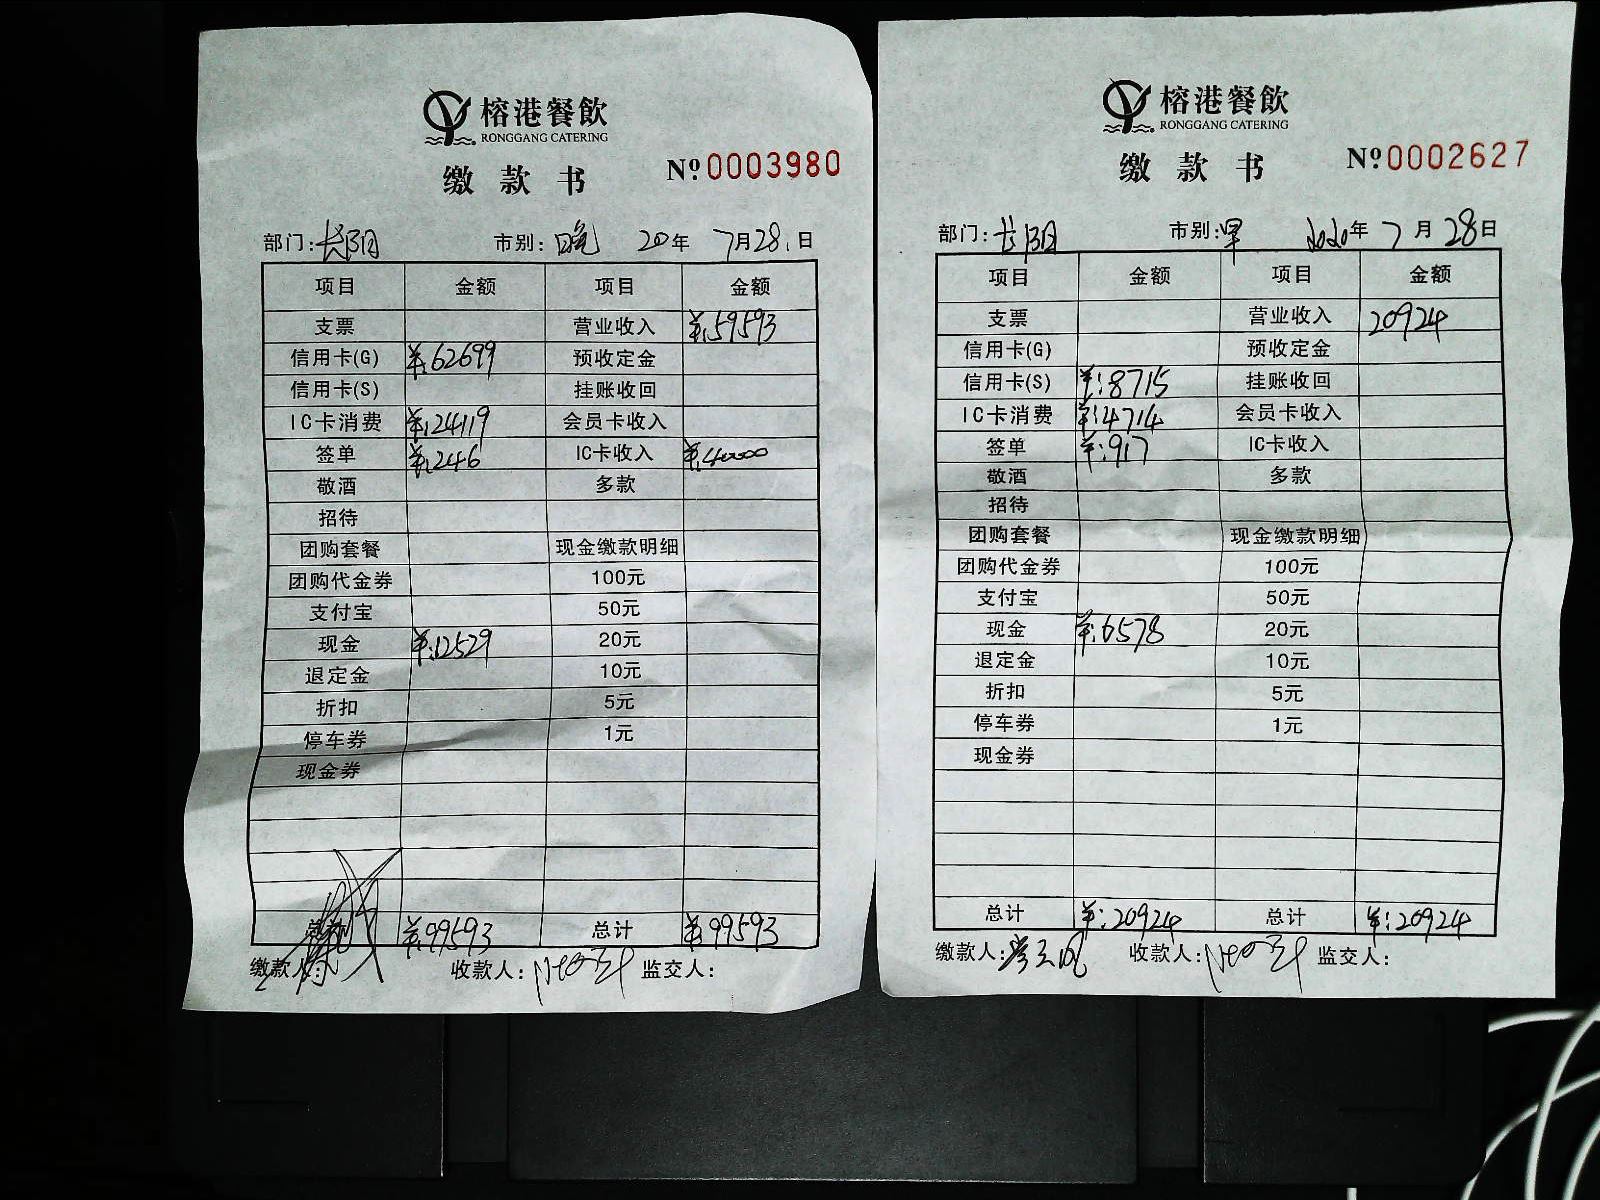 榕港餐飲
RONGGANG CATERING
缴款书
Nº 0003980
部门:长阳 市别:晚 2020年 7月28日
项目 金额 项目 金额
支票 营业收入 ¥:59593
信用卡(G) ¥:62699 预收定金
信用卡(S) 挂账收回
IC卡消费 ¥:24119 会员卡收入
签单 ¥:246 IC卡收入 ¥:40000
敬酒 多款
招待
团购套餐 现金缴款明细
团购代金券 100元
支付宝 50元
现金 ¥:12529 20元
退定金 10元
折扣 5元
停车券 1元
现金券
总计 ¥:99593 总计 ¥:99593
缴款人: 收款人: 监交人:
榕港餐飲
RONGGANG CATERING
缴款书
Nº 0002627
部门:长阳 市别:早 2020年 7月28日
项目 金额 项目 金额
支票 营业收入 20924
信用卡(G) 预收定金
信用卡(S) ¥:8715 挂账收回
IC卡消费 ¥:4714 会员卡收入
签单 ¥:917 IC卡收入
敬酒 多款
招待
团购套餐 现金缴款明细
团购代金券 100元
支付宝 50元
现金 ¥:6578 20元
退定金 10元
折扣 5元
停车券 1元
现金券
总计 ¥:20924 总计 ¥:20924
缴款人: 收款人: 监交人: